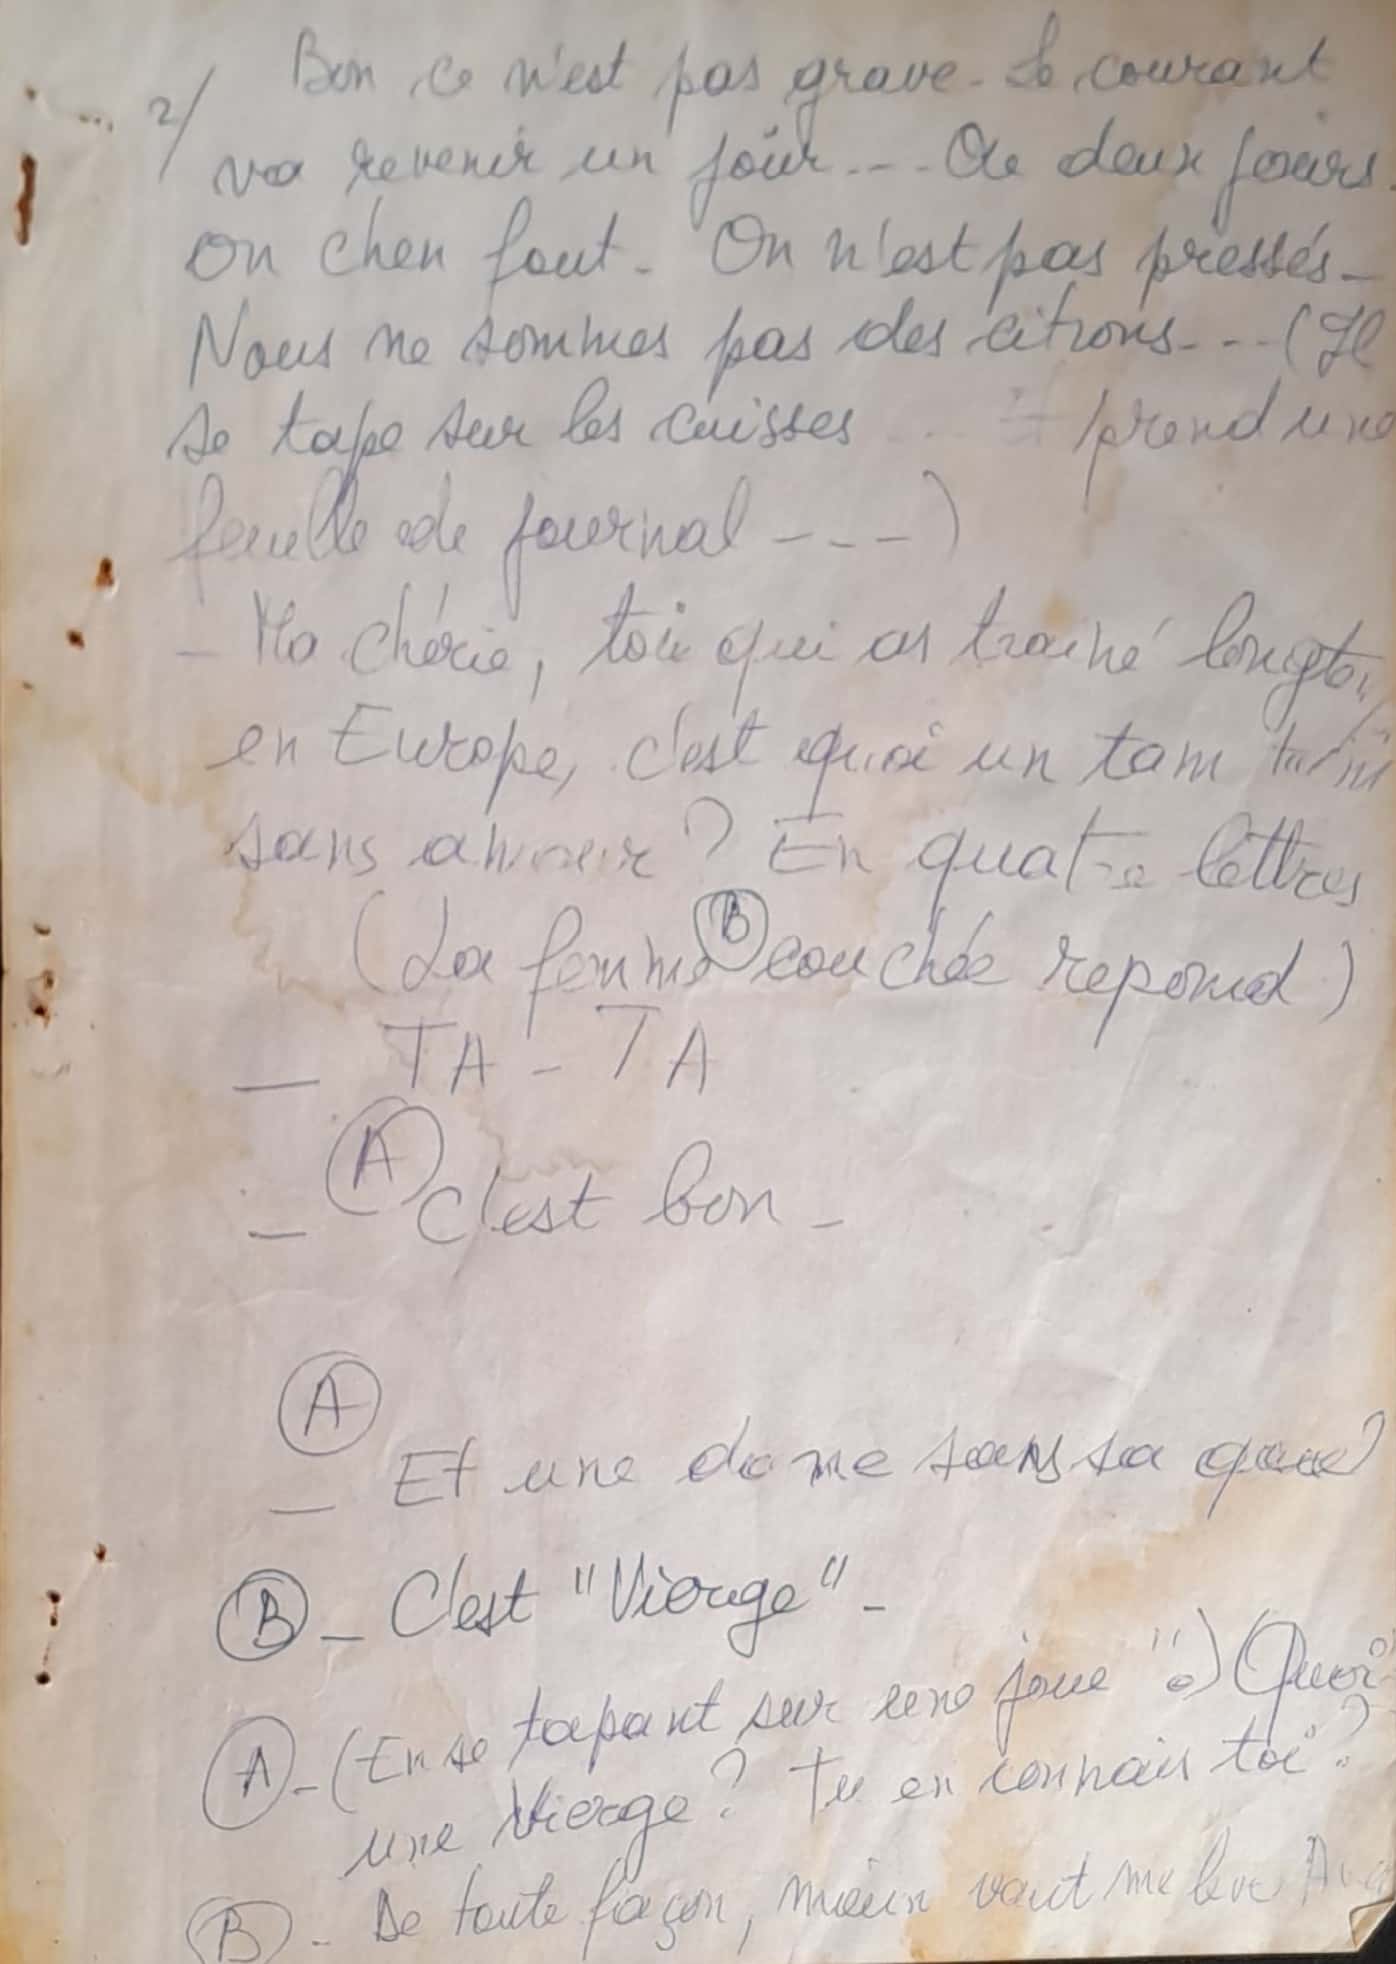 2/ Bon ce n'est pas grave - Le courant
va revenir un jour... De deux jours.
on chen fout. On n'est pas pressés -
Nous ne sommes pas des citrons... (Il
se tape sur les cuisses ... prend une
feuille de journal - - -)
- Ma chérie, toi qui as trainé
en Europe, c'est quoi un tam tam
sans amour ? En quatre lettres
(La femme (B) couchée repond)
— TA - TA
- (A) C'est bon -
(A)
— Et une dame sans sa
(B) - C'est "Vierge" -
(A) - (En se tapant sur une joue ") (Quoi
une Vierge ? Tu en connais toi ?
(B) - De toute façon, mieux vaut me